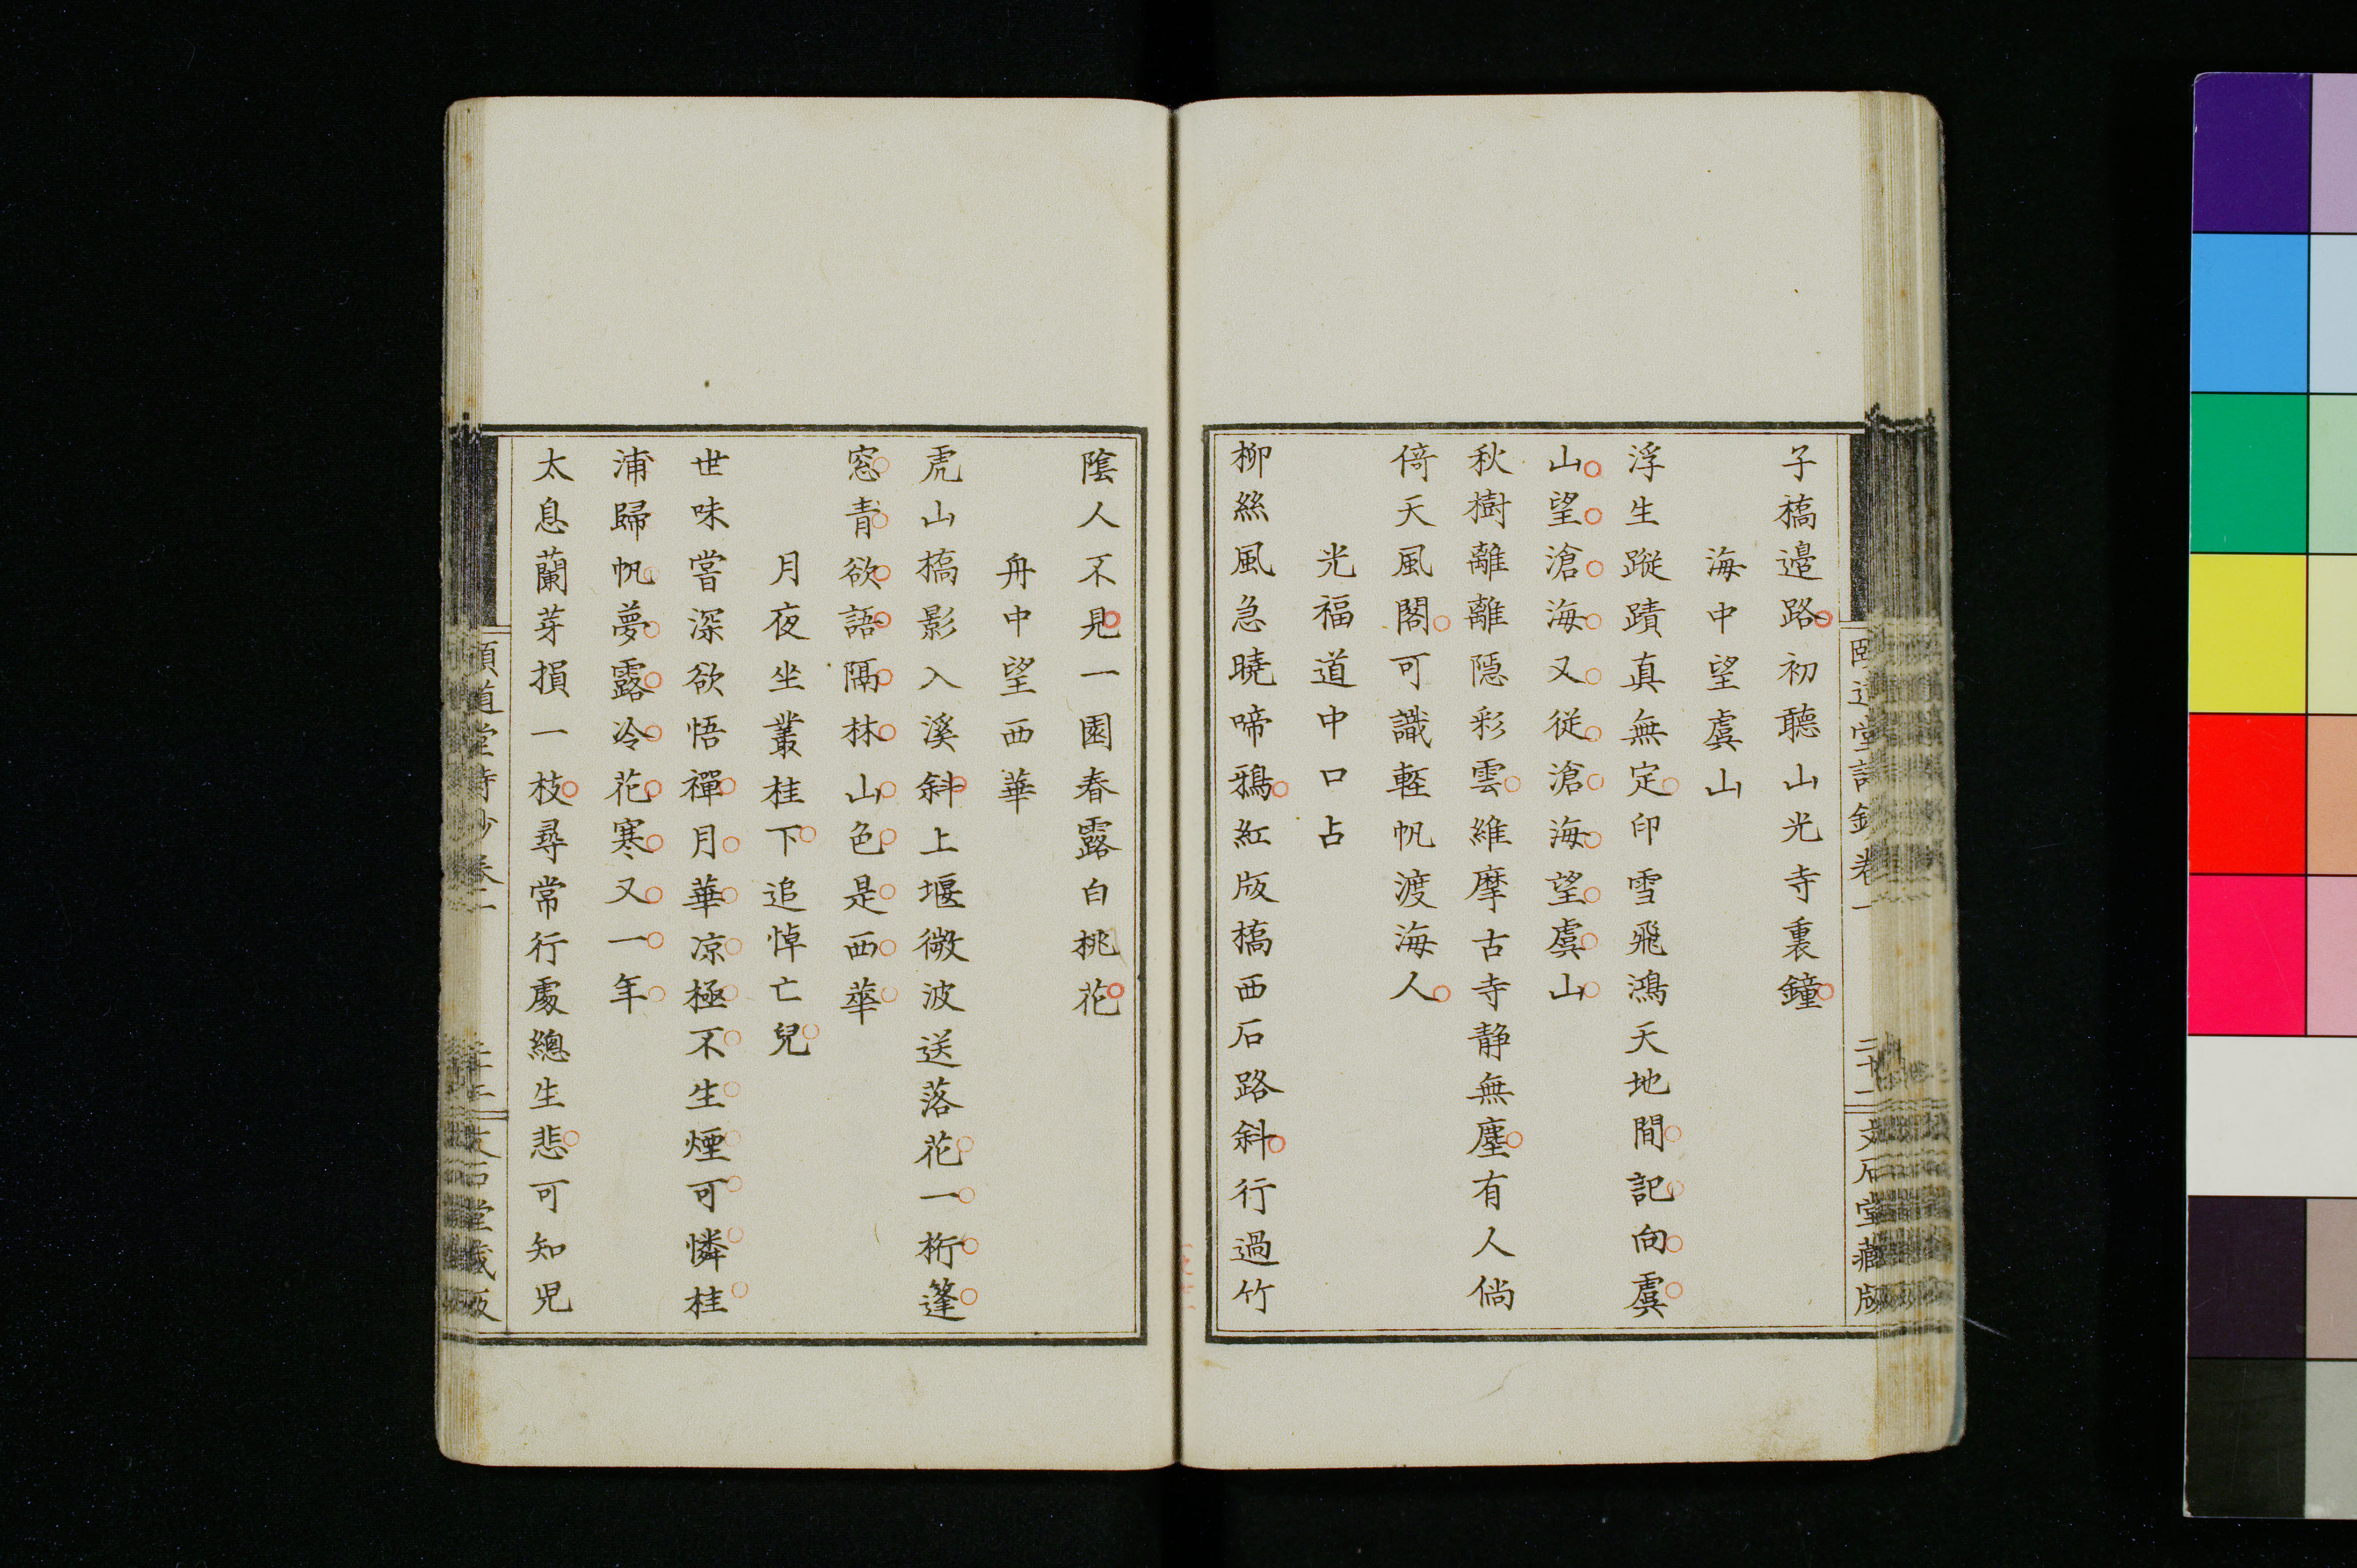 子橋邊路初聽山光寺裏鐘
海中望虞山
浮生蹤蹟真無定印雪飛鴻天地間記向虞
山望滄海又從滄海望虞山
秋樹離離隱彩雲維摩古寺静無塵有人倘
倚天風閣可識輕帆渡海人
光福道中口占
柳絲風急曉啼鴉紅版橋西石路斜行過竹
陰人不見一園春露白桃花
舟中望西華
虎山橋影入溪斜上堰微波送落花一桁篷
窓青欲語隔林山色是西華
月夜坐叢桂下追悼亡兒
世味嘗深欲悟禪月華凉極不生煙可憐桂
浦歸帆夢露冷花寒又一年
太息蘭芽損一枝尋常行處總生悲可知児
堂詩鈔卷一
二十一
文石堂藏版